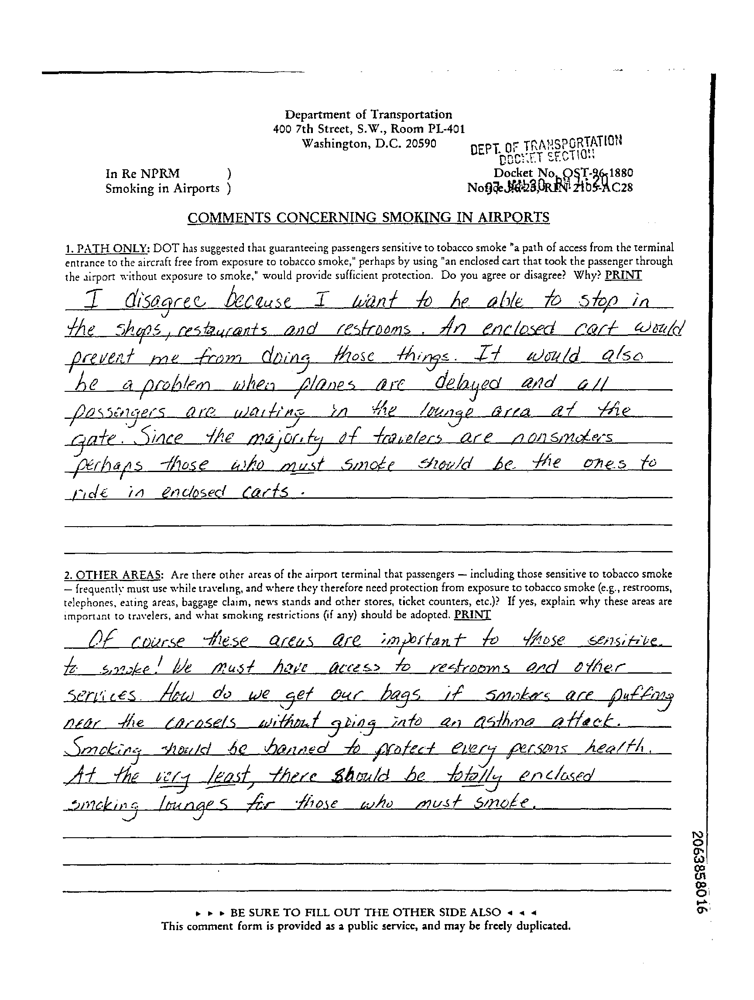 Department of Transportation
400 7th Street, S.W., Room PL-401
Washington, D.C. 20590
DEPT. OF TRANSPORTATION
DOCKET SECTION
In Re NPRM )
Docket No. OST-96-1880
Smoking in Airports )
COMMENTS CONCERNING SMOKING IN AIRPORTS
1. PATH ONLY: DOT has suggested that guaranteeing passengers sensitive to tobacco smoke "a path of access from the terminal
entrance to the aircraft free from exposure to tobacco smoke," perhaps by using "an enclosed cart that took the passenger through
the airport without exposure to smoke," would provide sufficient protection. Do you agree or disagree? Why? PRINT
I disagree because I want to be able to stop in
the shops, restaurants and restrooms. An enclosed cart would
prevent me from doing those things. It would also
be a problem when planes are delayed and all
passengers are waiting in the lounge area at the
gate. Since the majority of travelers are nonsmokers
perhaps those who must smoke should be the ones to
ride in enclosed carts.
2. OTHER AREAS: Are there other areas of the airport terminal that passengers — including those sensitive to tobacco smoke
— frequently must use while traveling, and where they therefore need protection from exposure to tobacco smoke (e.g., restrooms,
telephones, eating areas, baggage claim, news stands and other stores, ticket counters, etc.)? If yes, explain why these areas are
important to travelers, and what smoking restrictions (if any) should be adopted. PRINT
Of course these areas are important to those sensitive
to smoke! We must have access to restrooms and other
services. How do we get our bags if smokers are puffing
near the carosels without going into an asthma attack.
Smoking should be banned to protect every persons health.
At the very least, there should be totally enclosed
smoking lounges for those who must smoke.
2063858016
► ► ► BE SURE TO FILL OUT THE OTHER SIDE ALSO ◄ ◄ ◄
This comment form is provided as a public service, and may be freely duplicated.